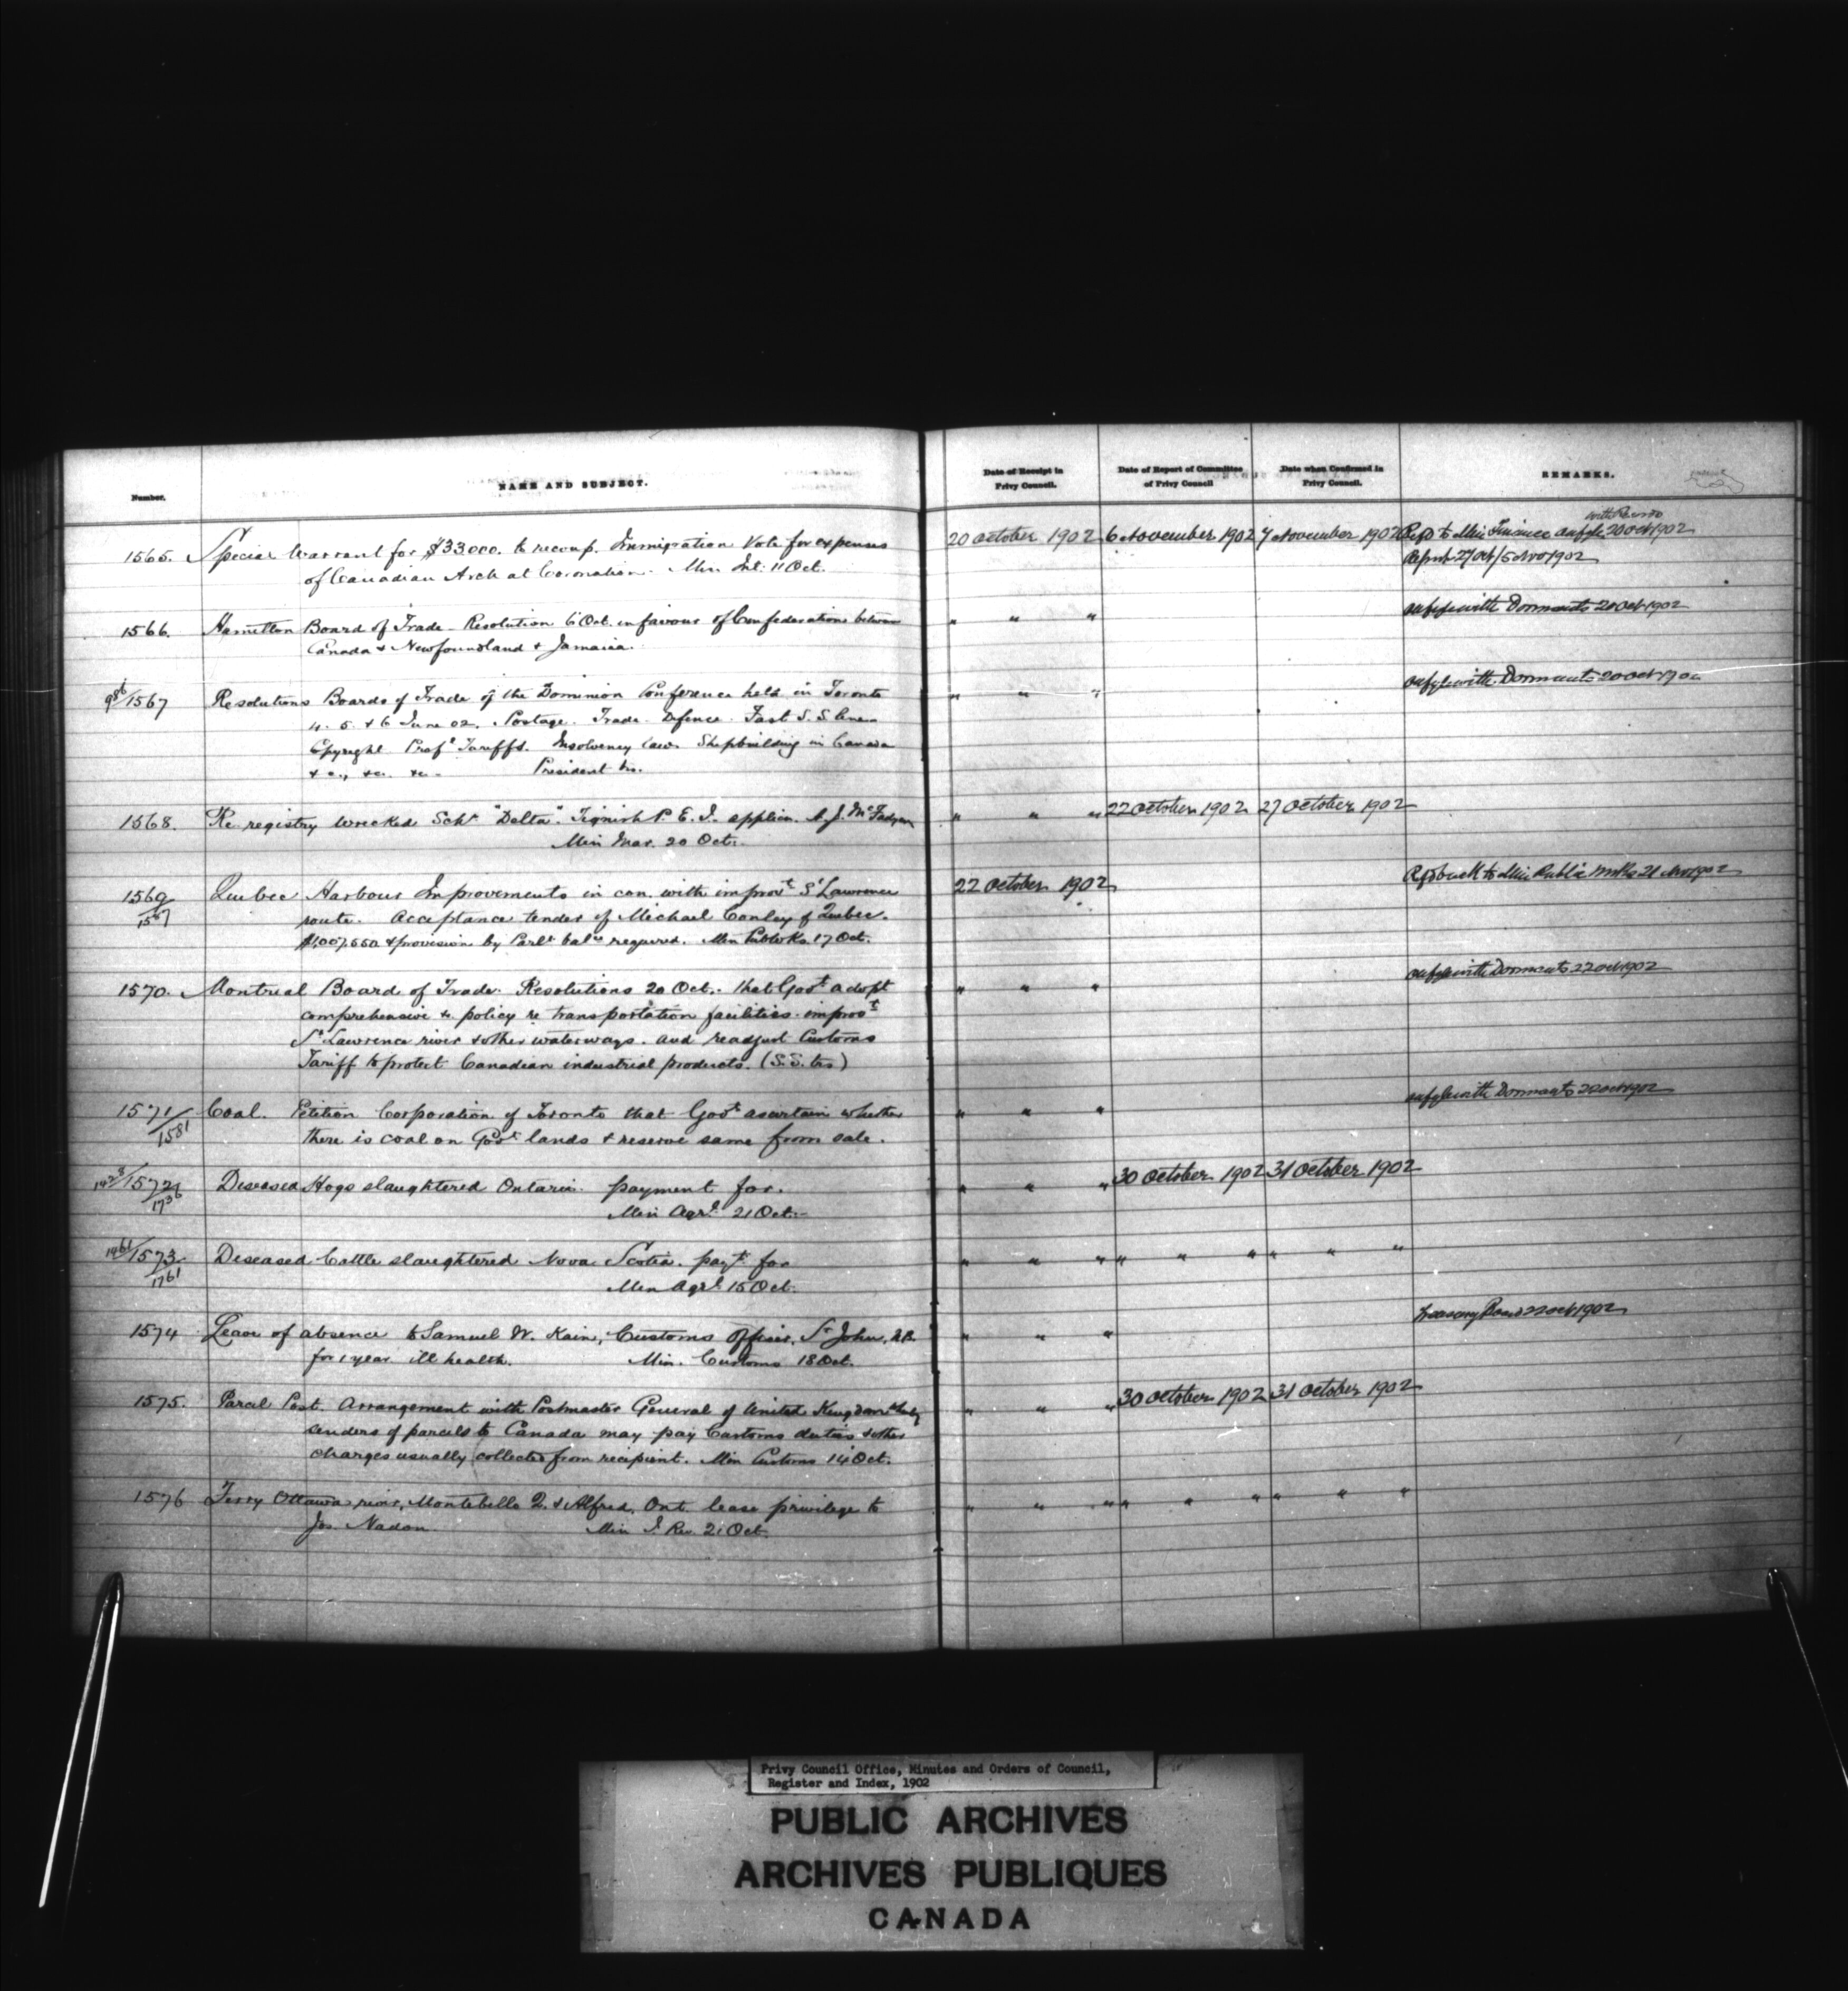 Number.
NAME AND SUBJECT.
Date of Receipt in Privy Council.
Date of Report of Committee of Privy Council
Date when Confirmed in Privy Council.
REMARKS.
1565. Special Warrant for $33.000. to recoup. Immigration Vote for expenses 20 October 1902 6 November 1902 7 November 1902 Refd to Min Finance 20 Oct 1902
of Canadian Arch at Coronation. Min. Int. 11 Oct. 27 Oct/5 Nov 1902
1566. Hamilton Board of Trade - Resolution 6 Oct. in favour of Confederation between " " " with Dormants 20 Oct 1902
Canada & Newfoundland & Jamaica.
986/1567 Resolutions Boards of Trade of the Dominion Conference held in Toronto " " " with Dormants 20 Oct 1902
4. 5. & 6 June 02. Postage. Trade. Defence. Fast S.S. lines
Copyright Prefl Tariffs. Insolvency law. Shipbuilding in Canada
&c., &c. &c. President
1568. Re registry wrecked Schr "Delta". Tignish P.E.I. applicn. A.J. McFadyen " " " 22 October 1902 27 October 1902
Min Mar. 20 Oct.
1569/1587 Quebec Harbour Improvements in con. with improvt St Lawrence 22 October 1902 Refd back to Min Public Works 21 Nov 1902
route. Acceptance tender of Michael Conley of Quebec.
& provision by Parlt required. Min Pub Wks. 17 Oct.
1570. Montreal Board of Trade. Resolutions 20 Oct. that Govt adopt " " " with Dormants 22 Oct 1902
comprehensive policy re transportation facilities. improvt
St Lawrence river & other waterways. and readjust Customs
Tariff to protect Canadian industrial products. (S.S. )
1571/1581 Coal. Petition Corporation of Toronto that Govt ascertain whether " " " with Dormants 22 Oct 1902
there is coal on Govt lands & reserve same from sale.
1428/1572/1736 Diseased Hogs slaughtered Ontario. payment for. " " " 30 October 1902 31 October 1902
Min Agrl. 21 Oct.
1461/1573/1761 Diseased Cattle slaughtered Nova Scotia. payt for " " " " " " " " "
Min Agrl. 15 Oct.
1574 Leave of absence to Samuel W. Kain, Customs Officer, St John, N.B. " " " Treasury Board 22 Oct 1902
for 1 year ill health. Min. Customs 18 Oct.
1575. Parcel Post. Arrangement with Postmaster General of United Kingdom whereby " " " 30 October 1902 31 October 1902
senders of parcels to Canada may pay Customs duties & other
charges usually collected from recipient. Min Customs 14 Oct.
1576 Ferry Ottawa river, Montebello Q. & Alfred, Ont lease privilege to " " " " " " " " "
Jos Nadon. Min I. Rev. 21 Oct.
Privy Council Office, Minutes and Orders of Council,
Register and Index, 1902
PUBLIC ARCHIVES
ARCHIVES PUBLIQUES
CANADA